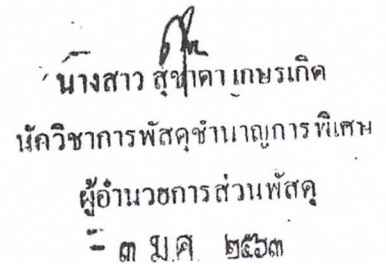 นางสาว สุชาดา เกษรเกิด
นักวิชาการพัสดุชำนาญการพิเศษ
ผู้อำนวยการส่วนพัสดุ
- ๓ ม.ค. ๒๕๖๓